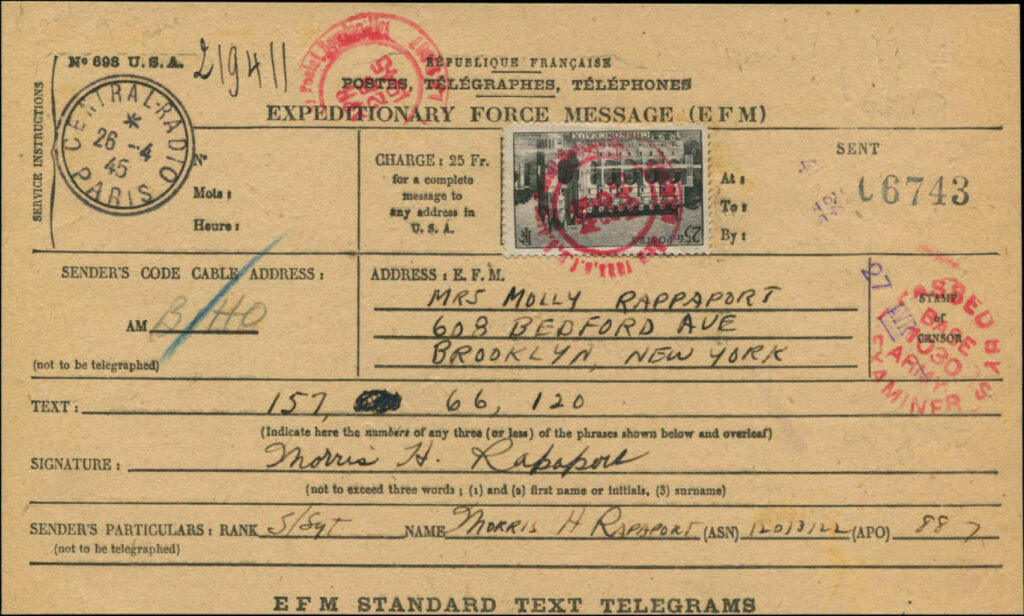 Nº 698 U.S.A. 219411
RÉPUBLIQUE FRANÇAISE
POSTES, TÉLÉGRAPHES, TÉLÉPHONES
EXPEDITIONARY FORCE MESSAGE (EFM)
SERVICE INSTRUCTIONS
CENTRAL-RADIO
26 -4
45
PARIS
N.
Mots :
Heure :
CHARGE : 25 Fr.
for a complete
message to
any address in
U. S. A.
CHENONCEAUX
25F POSTES RF
SENT
At :
To :
By :
06743
SENDER'S CODE CABLE ADDRESS :
AM B/HO
(not to be telegraphed)
ADDRESS : E. F. M.
MRS MOLLY RAPPAPORT
608 BEDFORD AVE
BROOKLYN, NEW YORK
STAMP
of
CENSOR
27
PASSED
BASE
1030
ARMY
EXAMINER
TEXT : 157, 66, 120
(Indicate here the numbers of any three (or less) of the phrases shown below and overleaf)
SIGNATURE : Morris H. Rapaport
(not to exceed three words ; (1) and (2) first name or initials, (3) surname)
SENDER'S PARTICULARS : RANK S/Sgt NAME MORRIS H RAPAPORT (ASN) 12013122 (APO) 887
(not to be telegraphed)
EFM STANDARD TEXT TELEGRAMS